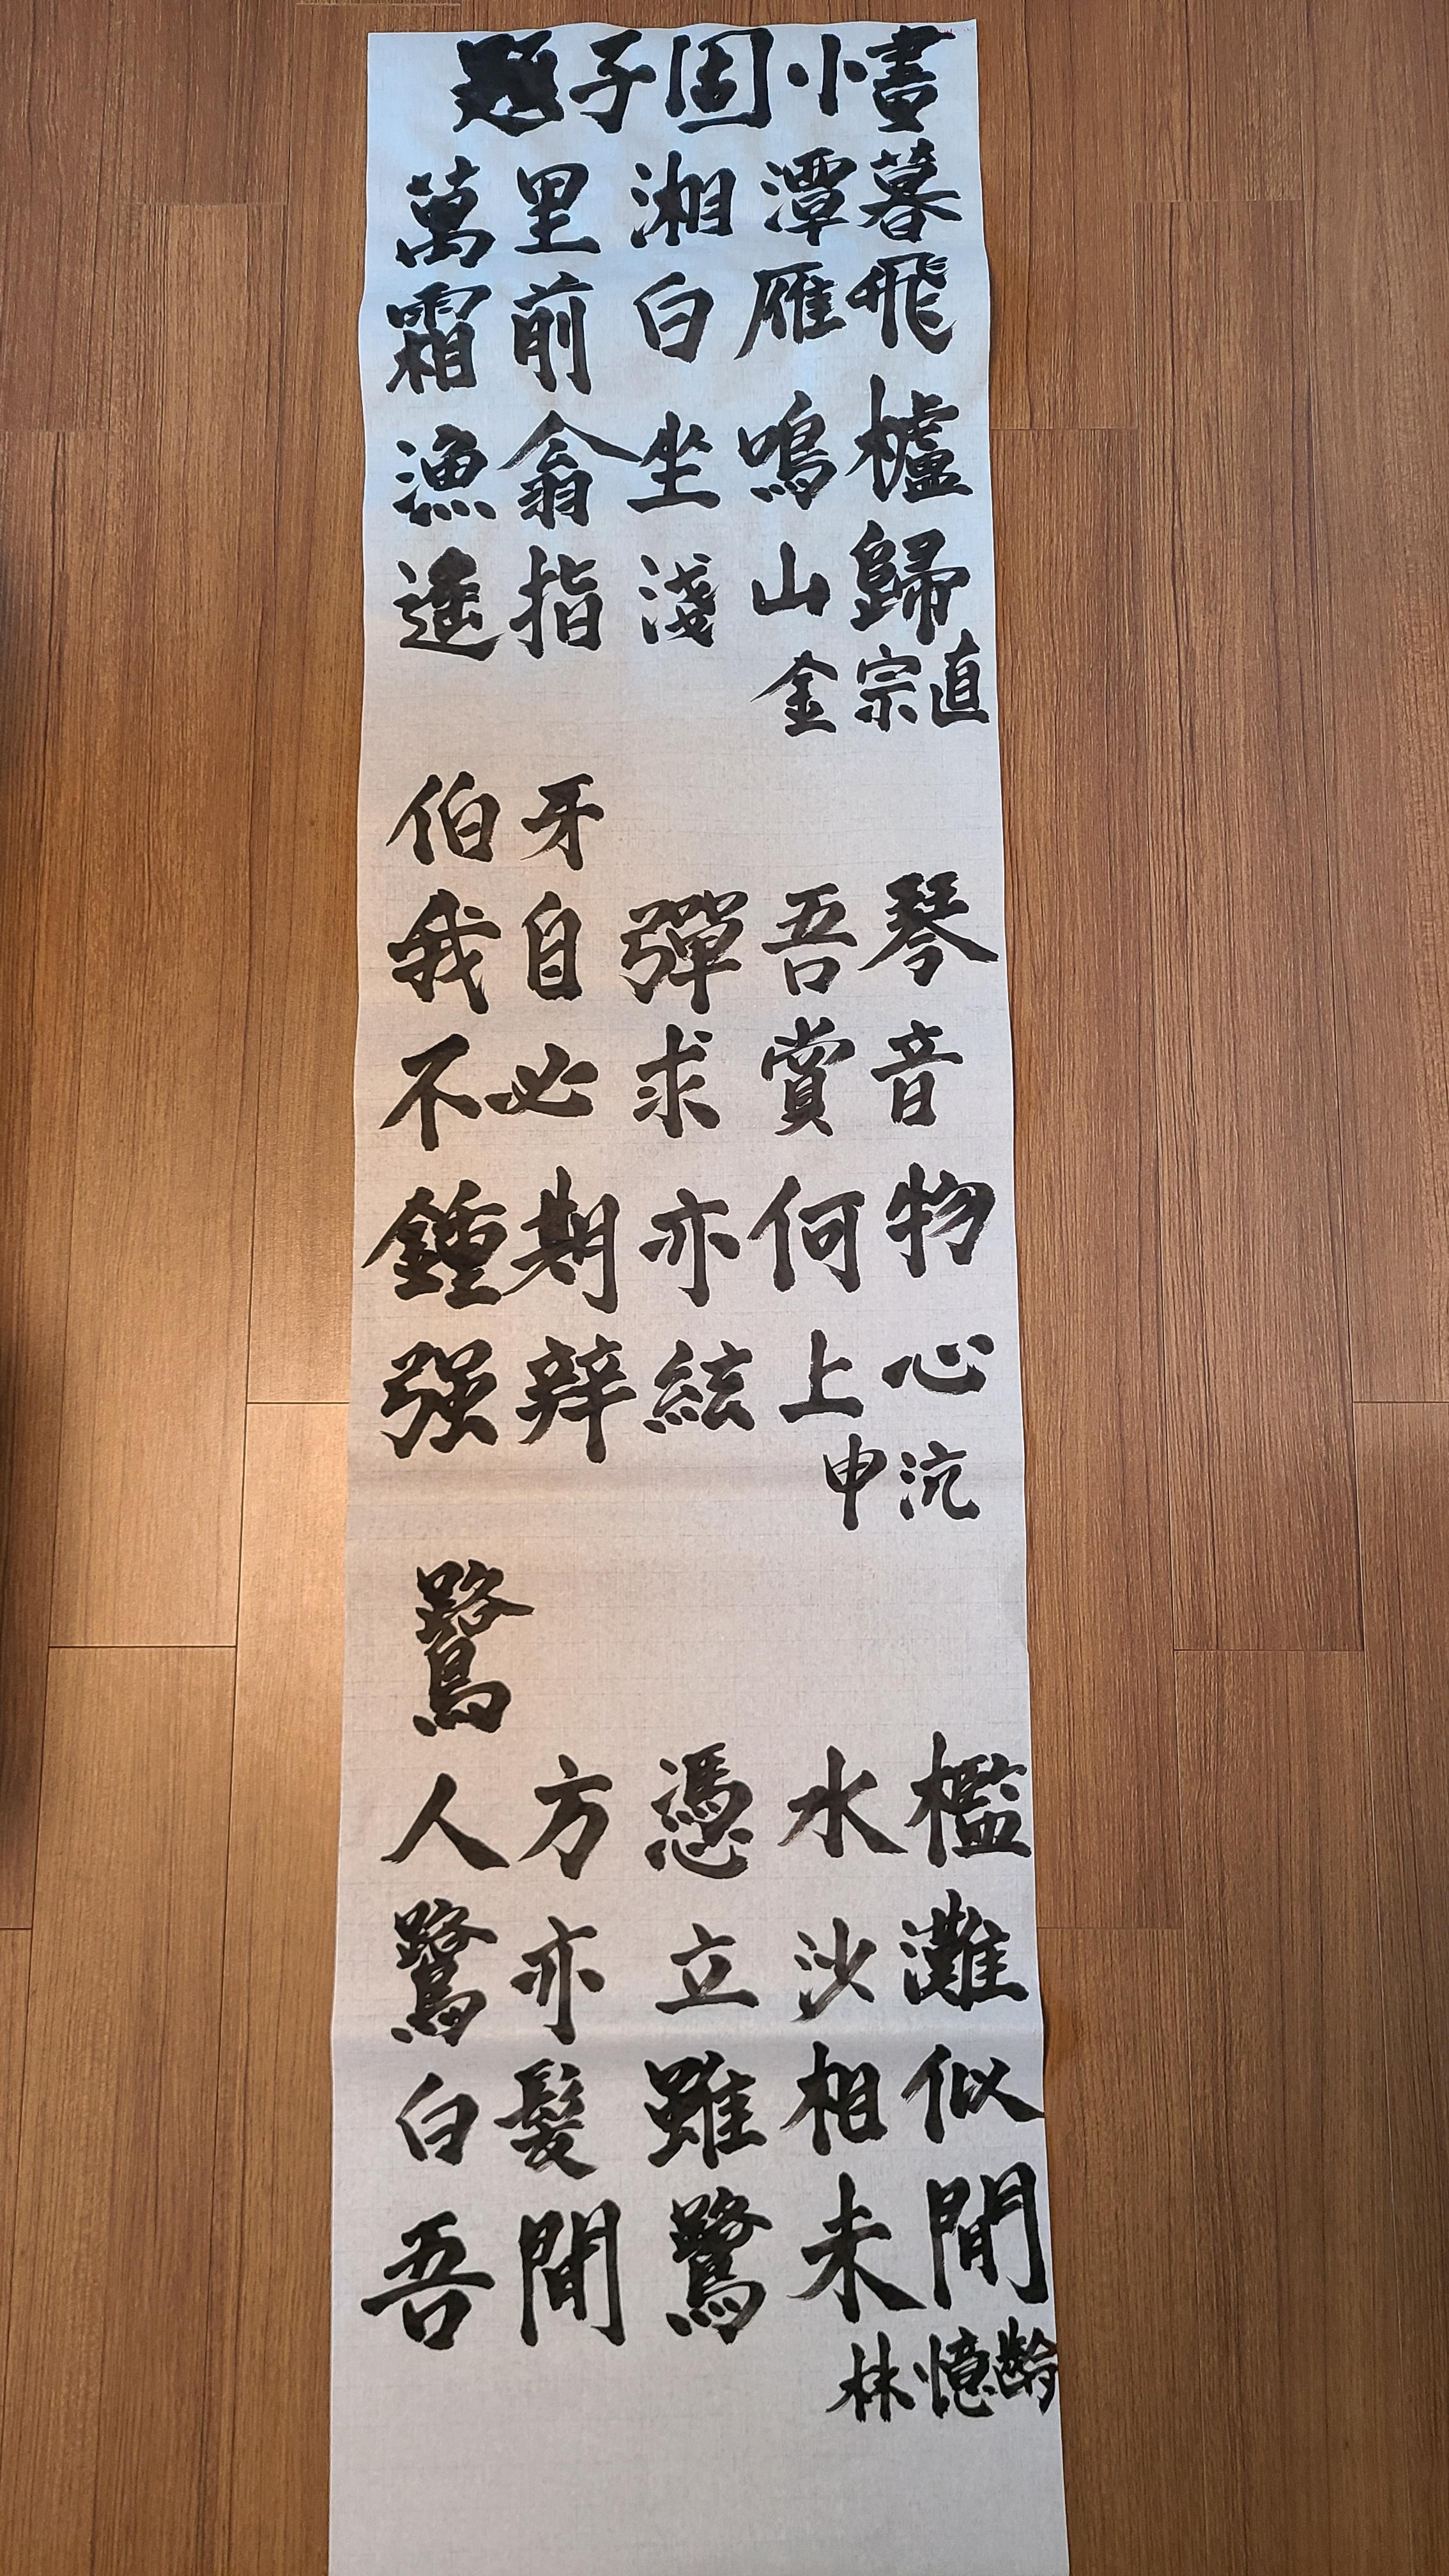 題子固小畫
萬里湘潭暮
霜前白雁飛
漁翁坐鳴櫨
遙指淺山歸
金宗直
伯牙
我自彈吾琴
不必求賞音
鍾期亦何物
强辨絃上心
申沆
鷺
人方憑水檻
鷺亦立沙灘
白髮雖相似
吾閒鷺未閒
林憶齡